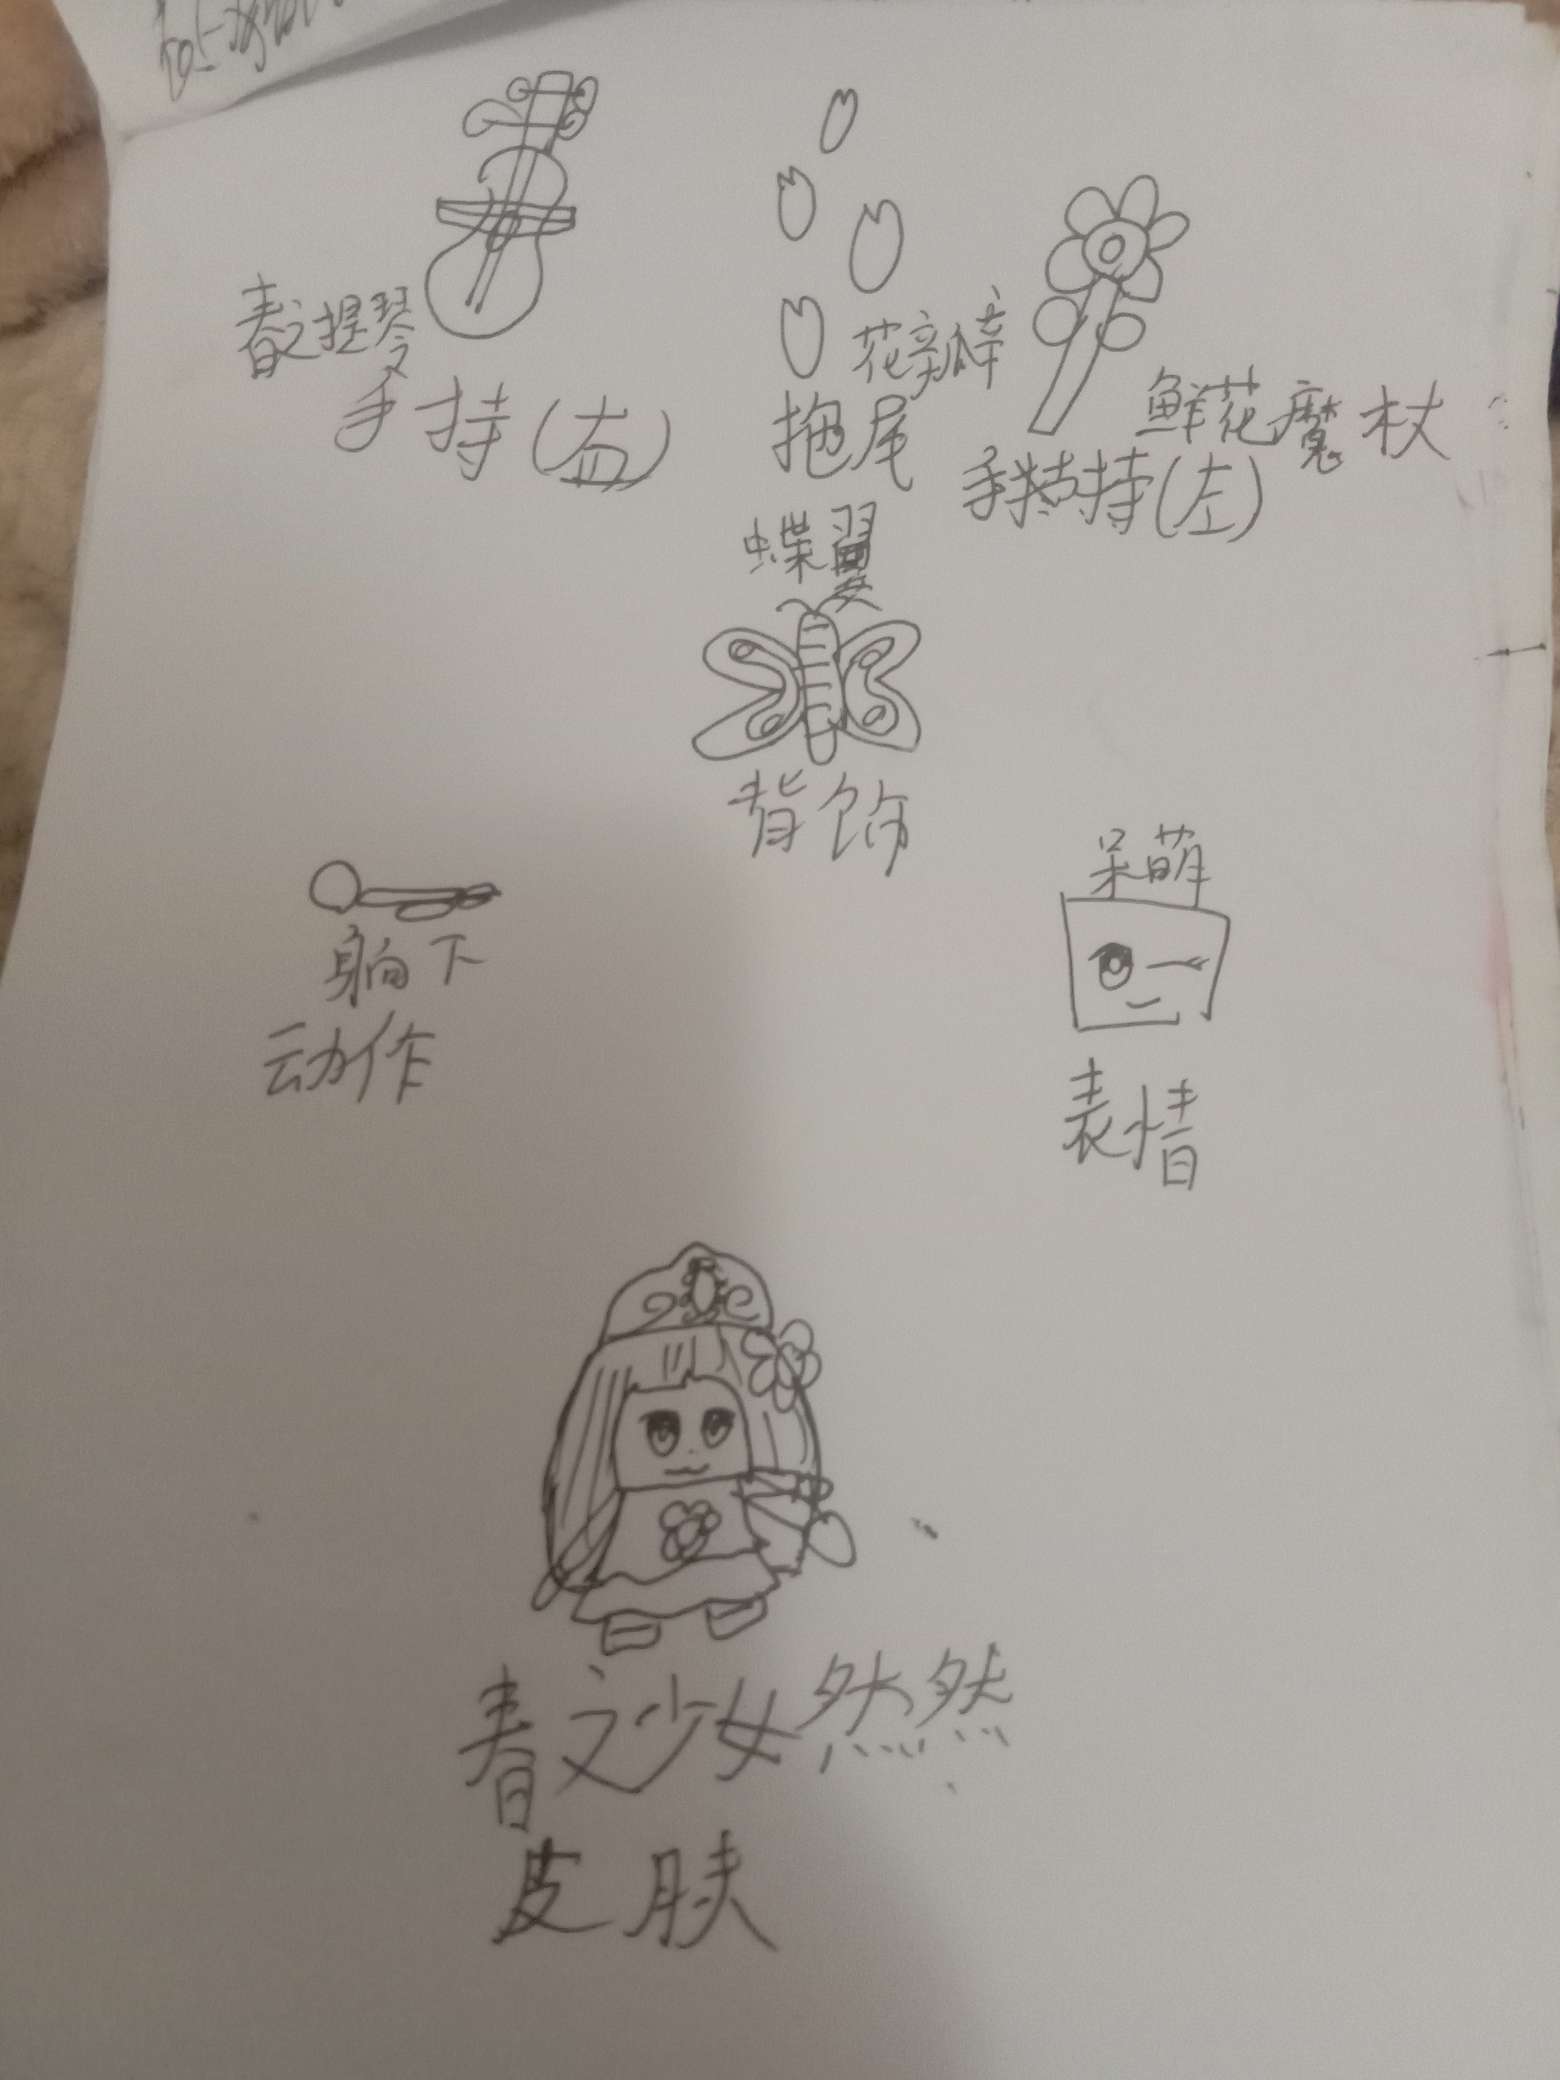 春之提琴
手持(右)
花瓣
拖尾
鲜花魔杖
手持(左)
蝶翼
背饰
躺下
动作
呆萌
表情
春之少女然然
皮肤